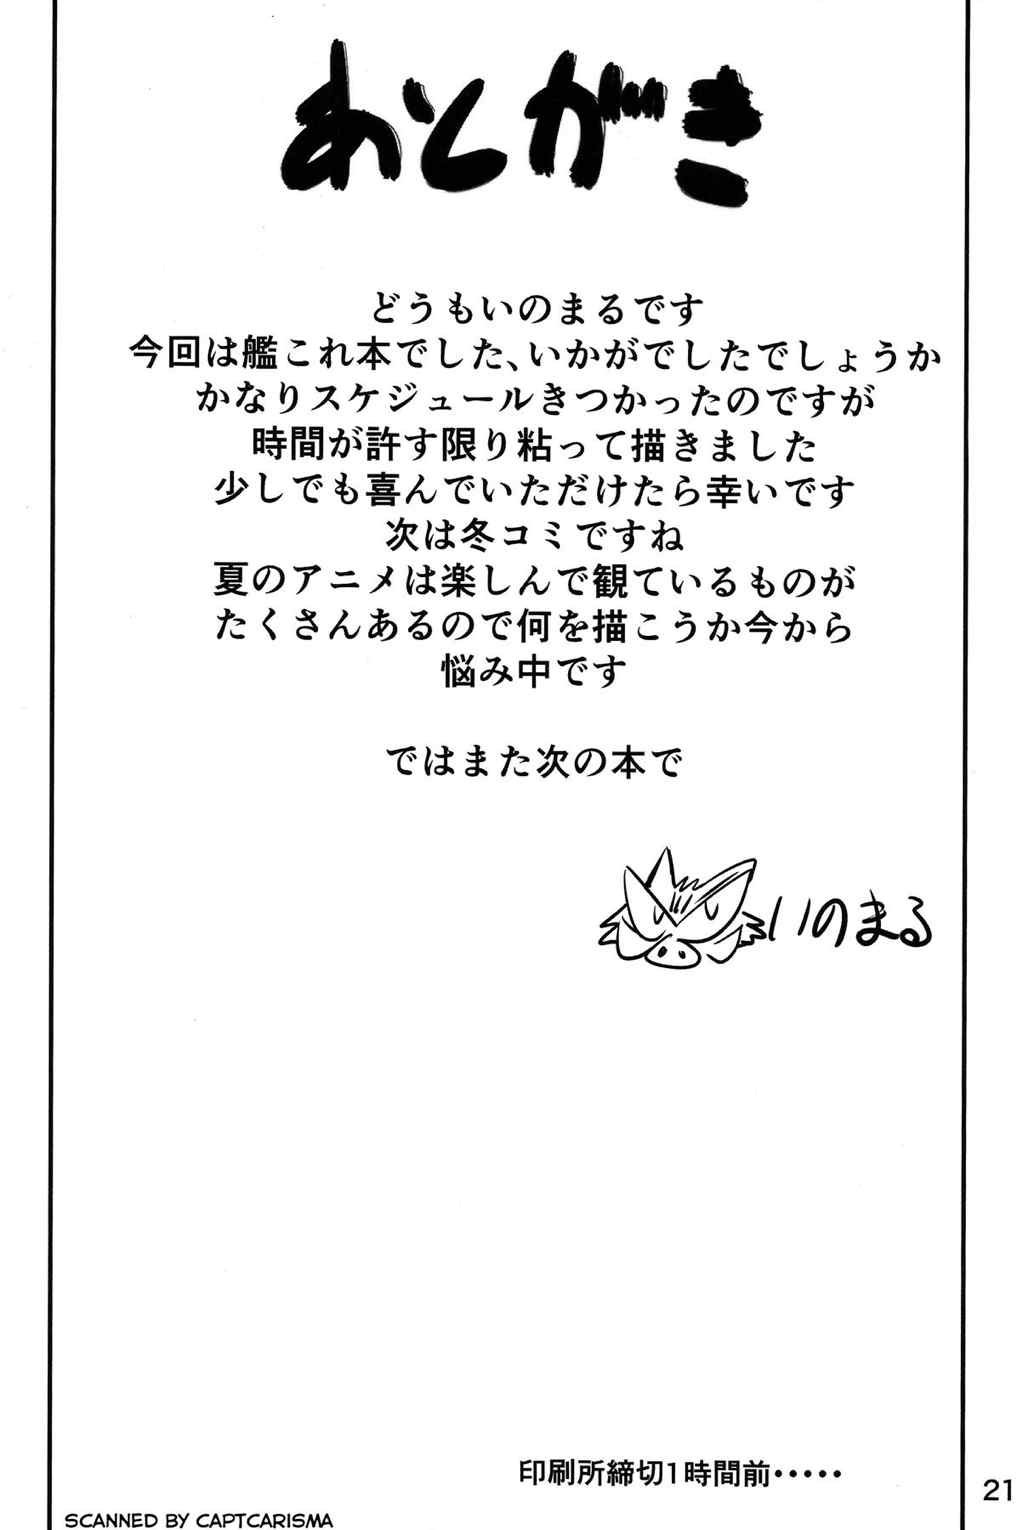 あとがき
どうもいのまるです
今回は艦これ本でした、いかがでしたでしょうか
かなりスケジュールきつかったのですが
時間が許す限り粘って描きました
少しでも喜んでいただけたら幸いです
次は冬コミですね
夏のアニメは楽しんで観ているものが
たくさんあるので何を描こうか今から
悩み中です
ではまた次の本で
いのまる
印刷所締切1時間前・・・・・
21
SCANNED BY CAPTCARISMA